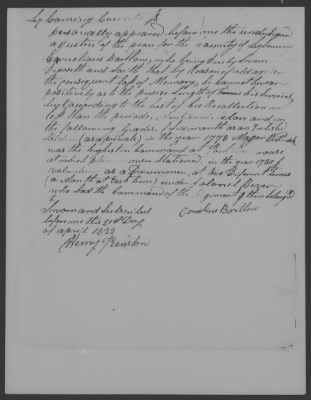 Lycoming County Ss
personally appeared before me the undersigned
a Justice of the peace for the County of Lycoming
Cornelius Barton, who being duly sworn
deposeth and saith that by Reason of old age &
the consequent Loss of Memory, he cannot swear
positively as to the precise Length of his service,
but according to the best of his Recollection no
less than the periods below and in
the following Grades five month as an Enlisted
Soldier (as a private) in the year 1778 Major
was the highest in Command at Port
at which place men Stationed, in the year 1780
volunteer as a at two Different terms
(a Month at Each time) under Colonel
who had the Command of the Regiment I then belonged
to
Sworn and Subscribed
before me this Day
of April 1833
Cornelius Barton
Henry